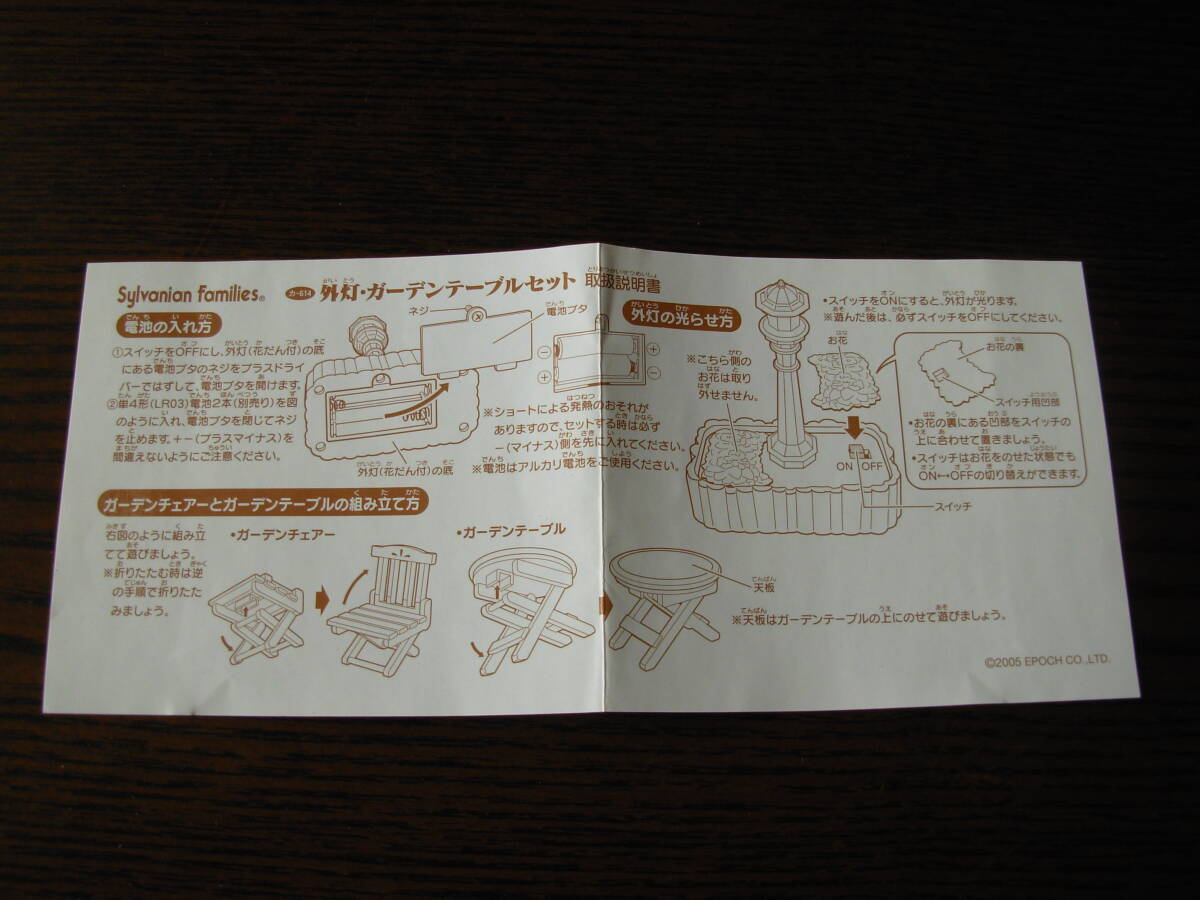 Sylvanian Families®
カ-614 外灯・ガーデンテーブルセット 取扱説明書
電池の入れ方
①スイッチをOFFにし、外灯(花だん付)の底
にある電池ブタのネジをプラスドライ
バーではずして、電池ブタを開けます。
②単4形(LR03)電池2本(別売り)を図
のように入れ、電池ブタを閉じてネジ
を止めます。+−(プラスマイナス)を
間違えないようにご注意ください。
ネジ
電池ブタ
外灯(花だん付)の底
※ショートによる発熱のおそれが
ありますので、セットする時は必ず
−(マイナス)側を先に入れてください。
※電池はアルカリ電池をご使用ください。
外灯の光らせ方
•スイッチをONにすると、外灯が光ります。
※遊んだ後は、必ずスイッチをOFFにしてください。
※こちら側の
お花は取り
外せません。
お花
お花の裏
スイッチ用凹部
•お花の裏にある凹部をスイッチの
上に合わせて置きましょう。
•スイッチはお花をのせた状態でも
ON↔OFFの切り替えができます。
ON OFF
スイッチ
ガーデンチェアーとガーデンテーブルの組み立て方
右図のように組み立
てて遊びましょう。
※折りたたむ時は逆
の手順で折りたた
みましょう。
•ガーデンチェアー
•ガーデンテーブル
天板
※天板はガーデンテーブルの上にのせて遊びましょう。
©2005 EPOCH CO.,LTD.